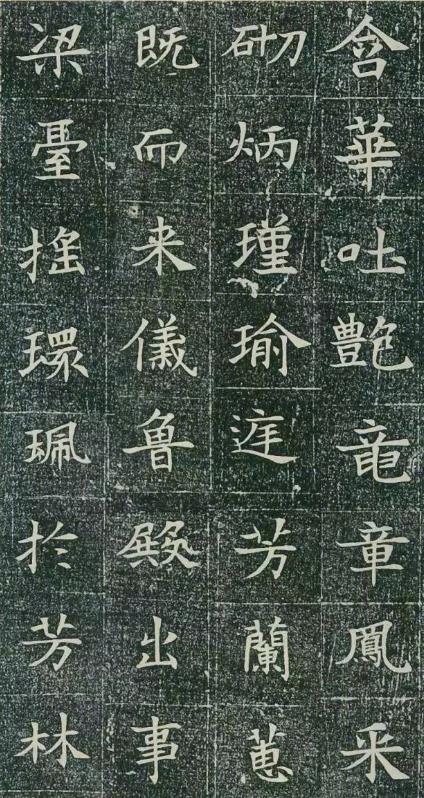 含華吐艷竜章鳳采
砌炳瑾瑜庭芳蘭蕙
既而来儀魯殿出事
梁臺搖環珮於芳林